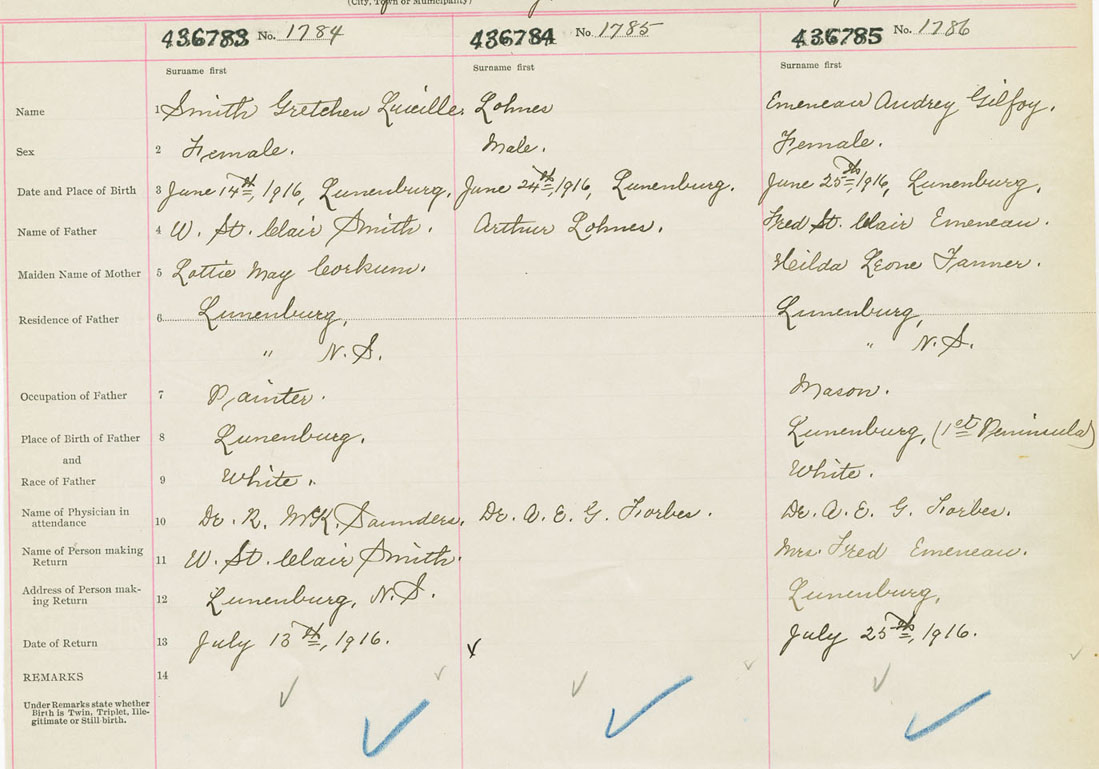 (City, Town or Municipality)
436783 No. 1784 436784 No. 1785 436785 No. 1786
Surname first Surname first Surname first
Name 1 Smith Gretchen Lucille. Lohnes Emeneau Audrey Gilfoy.
Sex 2 Female. Male. Female.
Date and Place of Birth 3 June 14th, 1916, Lunenburg. June 24th, 1916, Lunenburg. June 25th, 1916, Lunenburg.
Name of Father 4 W. St. Clair Smith. Arthur Lohnes. Fred St. Clair Emeneau.
Maiden Name of Mother 5 Lottie May Corkum. Hilda Leone Tanner.
Residence of Father 6 Lunenburg, Lunenburg,
" N.S. " N.S.
Occupation of Father 7 Painter. Mason.
Place of Birth of Father 8 Lunenburg. Lunenburg, (1st Peninsula)
and
Race of Father 9 White. White.
Name of Physician in
attendance 10 Dr. R. McK. Saunders. Dr. A. E. G. Forbes. Dr. A. E. G. Forbes.
Name of Person making
Return 11 W. St. Clair Smith. Mrs. Fred Emeneau.
Address of Person mak-
ing Return 12 Lunenburg, N.S. Lunenburg,
Date of Return 13 July 13th, 1916. July 25th, 1916.
REMARKS 14
Under Remarks state whether
Birth is Twin, Triplet, Ille-
gitimate or Still-birth.